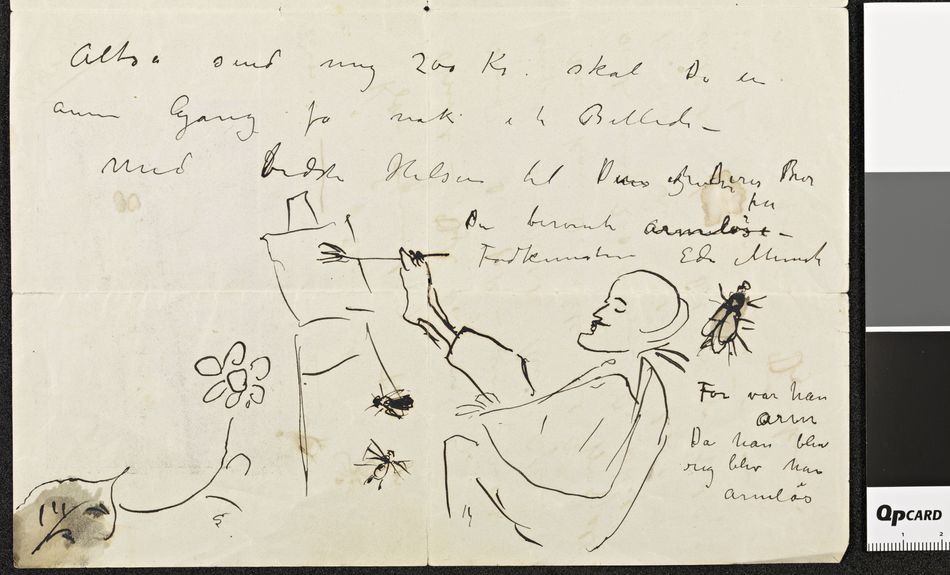 Altså send mig 200 Kr. skal De en
annen Gang få et Billede –
Med bedste Hilsen til Deres Bror
fra
Den berømte armløse –
Fodkunstner Edv Munch
Før var han
arm
Da han blev
rig blev han
armløs
QPCARD
1 2